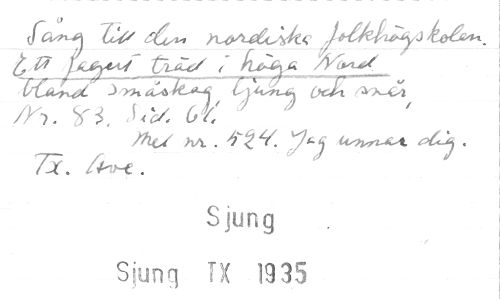 Sång till den nordiska folkhögskolan.
Ett fagert träd i höga Nord
bland småskog, ljung och snår,
Nr. 83. Sid. 61.
Mel nr. 524. Jag unnar dig.
Tx. Ave.
Sjung
Sjung TX 1935